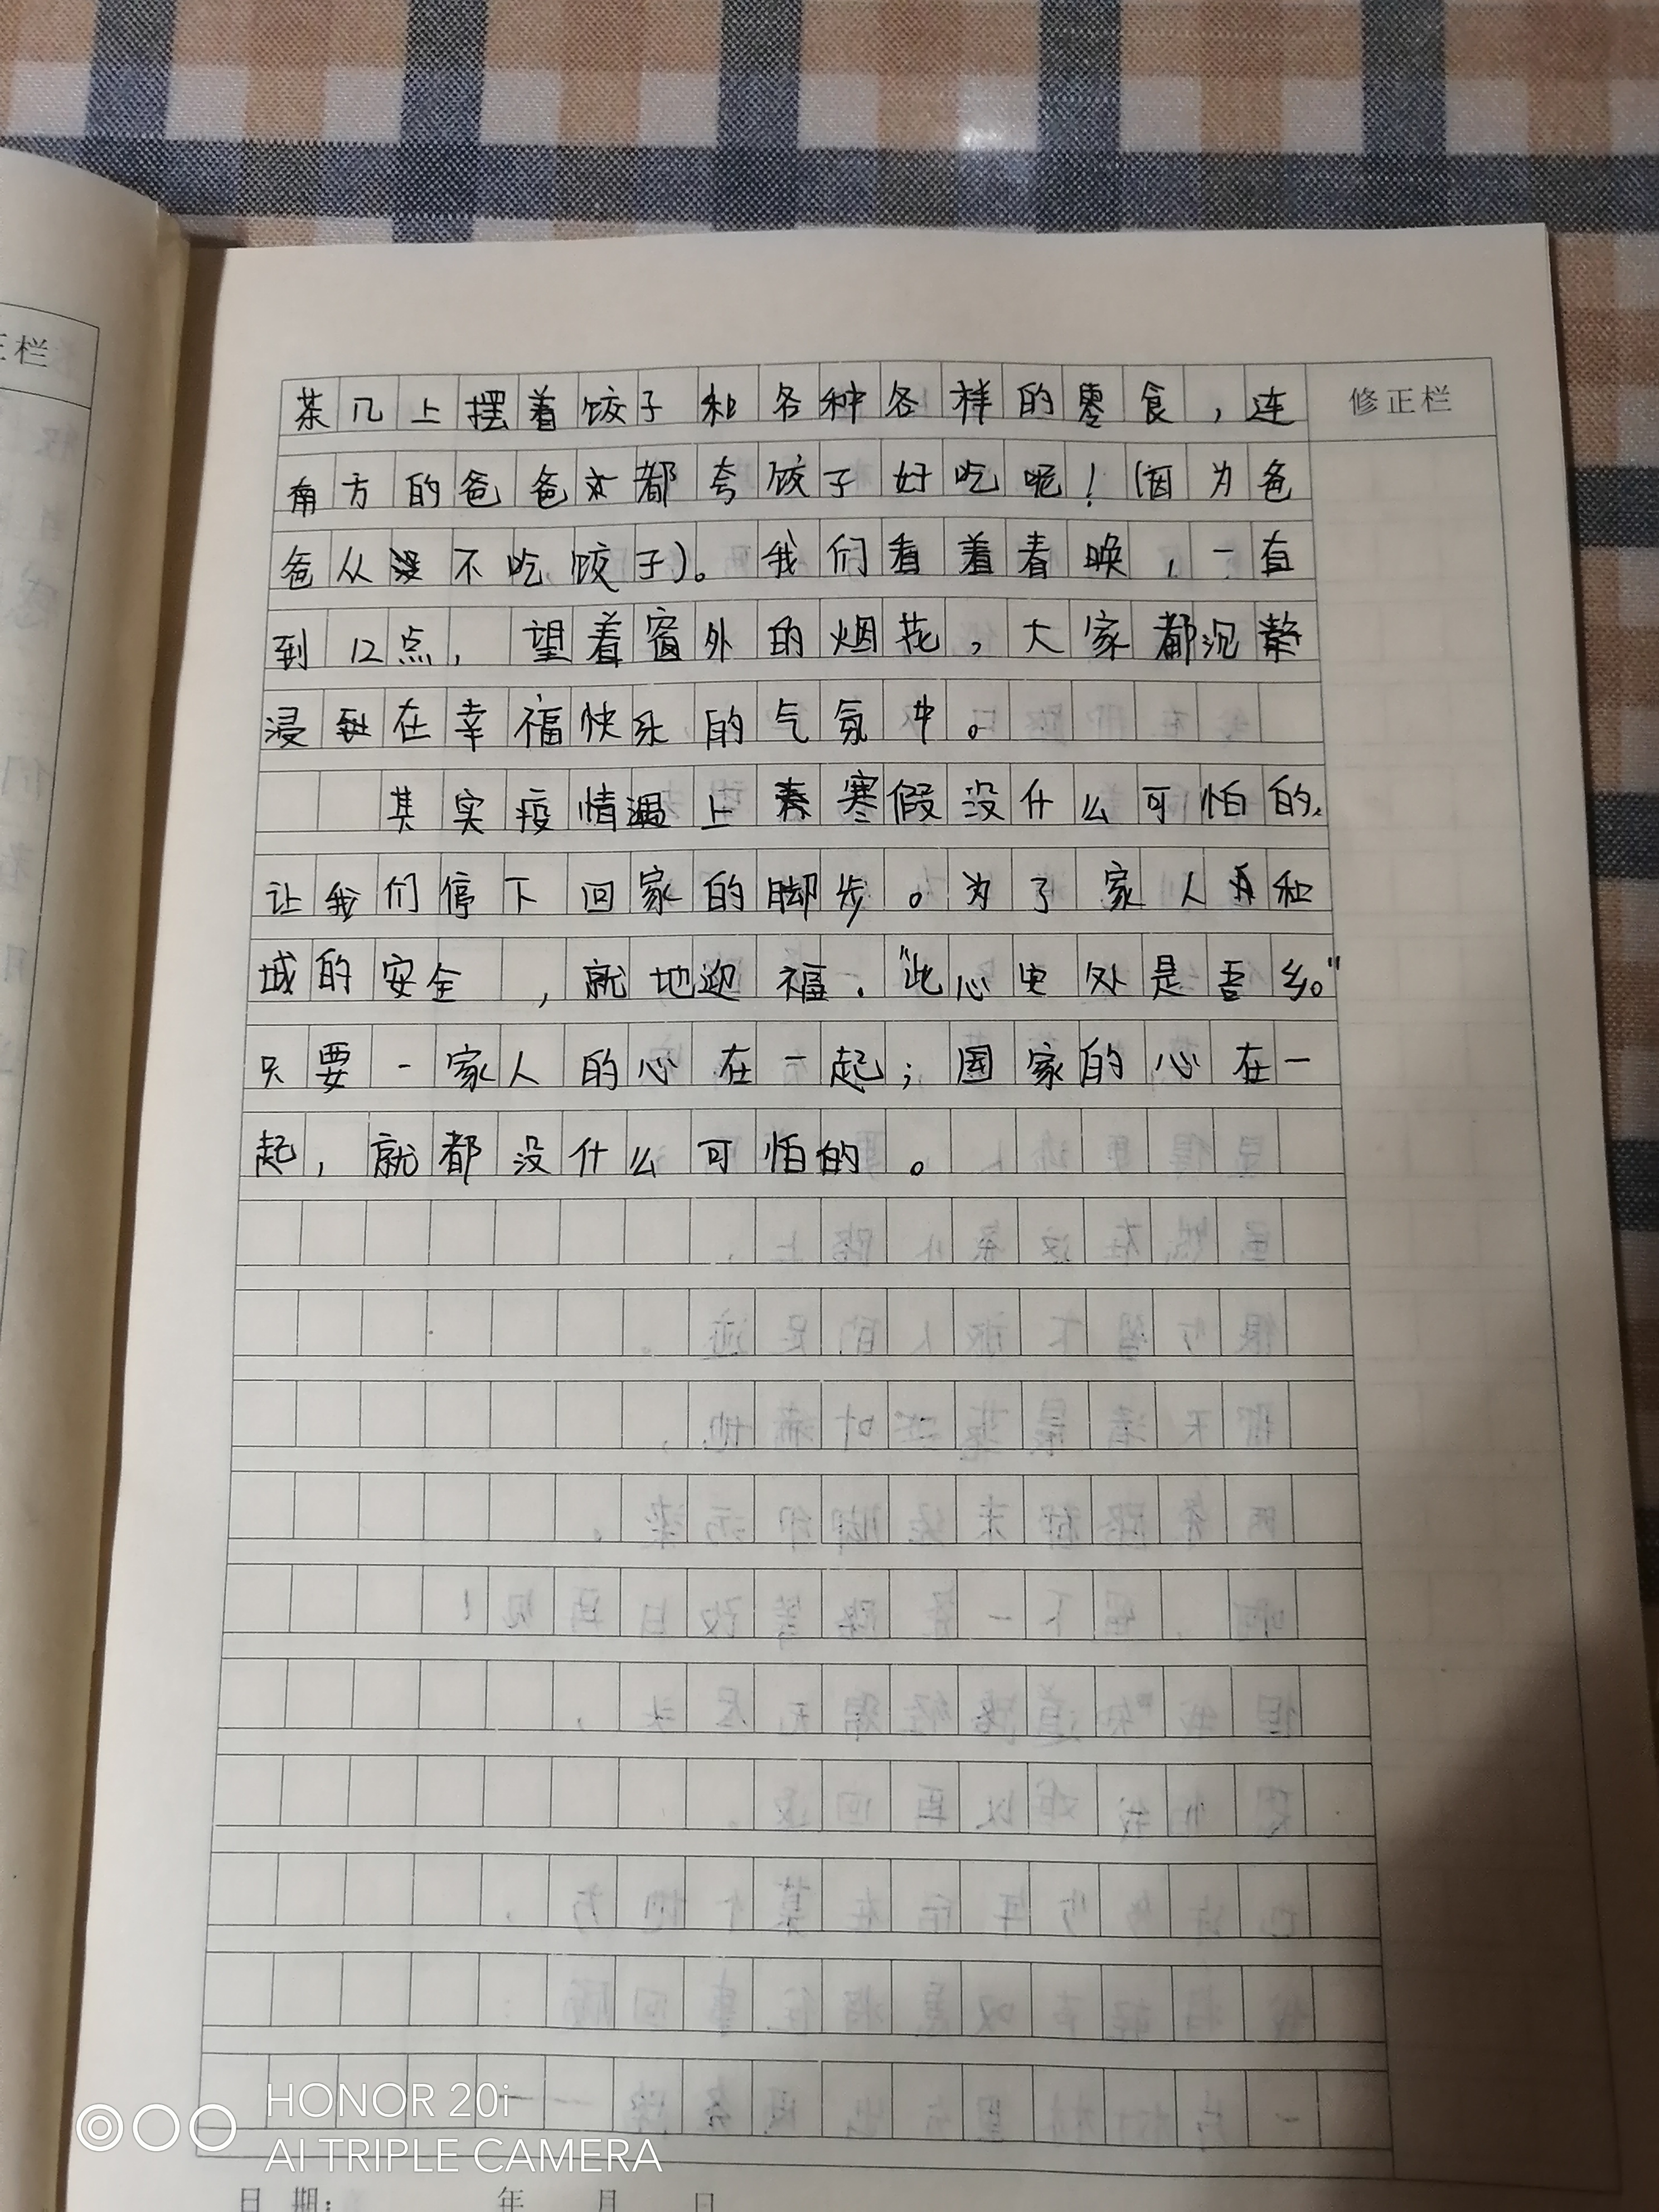 正栏
修正栏
茶几上摆着饺子和各种各样的零食,连
南方的爸爸都夸饺子好吃呢!(因为爸
爸从不吃饺子)。我们看着春晚,一直
到12点,望着窗外的烟花,大家都沉
浸在幸福快乐的气氛中。
其实疫情遇上寒假没什么可怕的.
让我们停下回家的脚步。为了家人和
城的安全,就地迎福.“此心安处是吾乡。”
只要一家人的心在一起;国家的心在一
起,就都没什么可怕的。
日期: 年 月 日
HONOR 20i
AI TRIPLE CAMERA